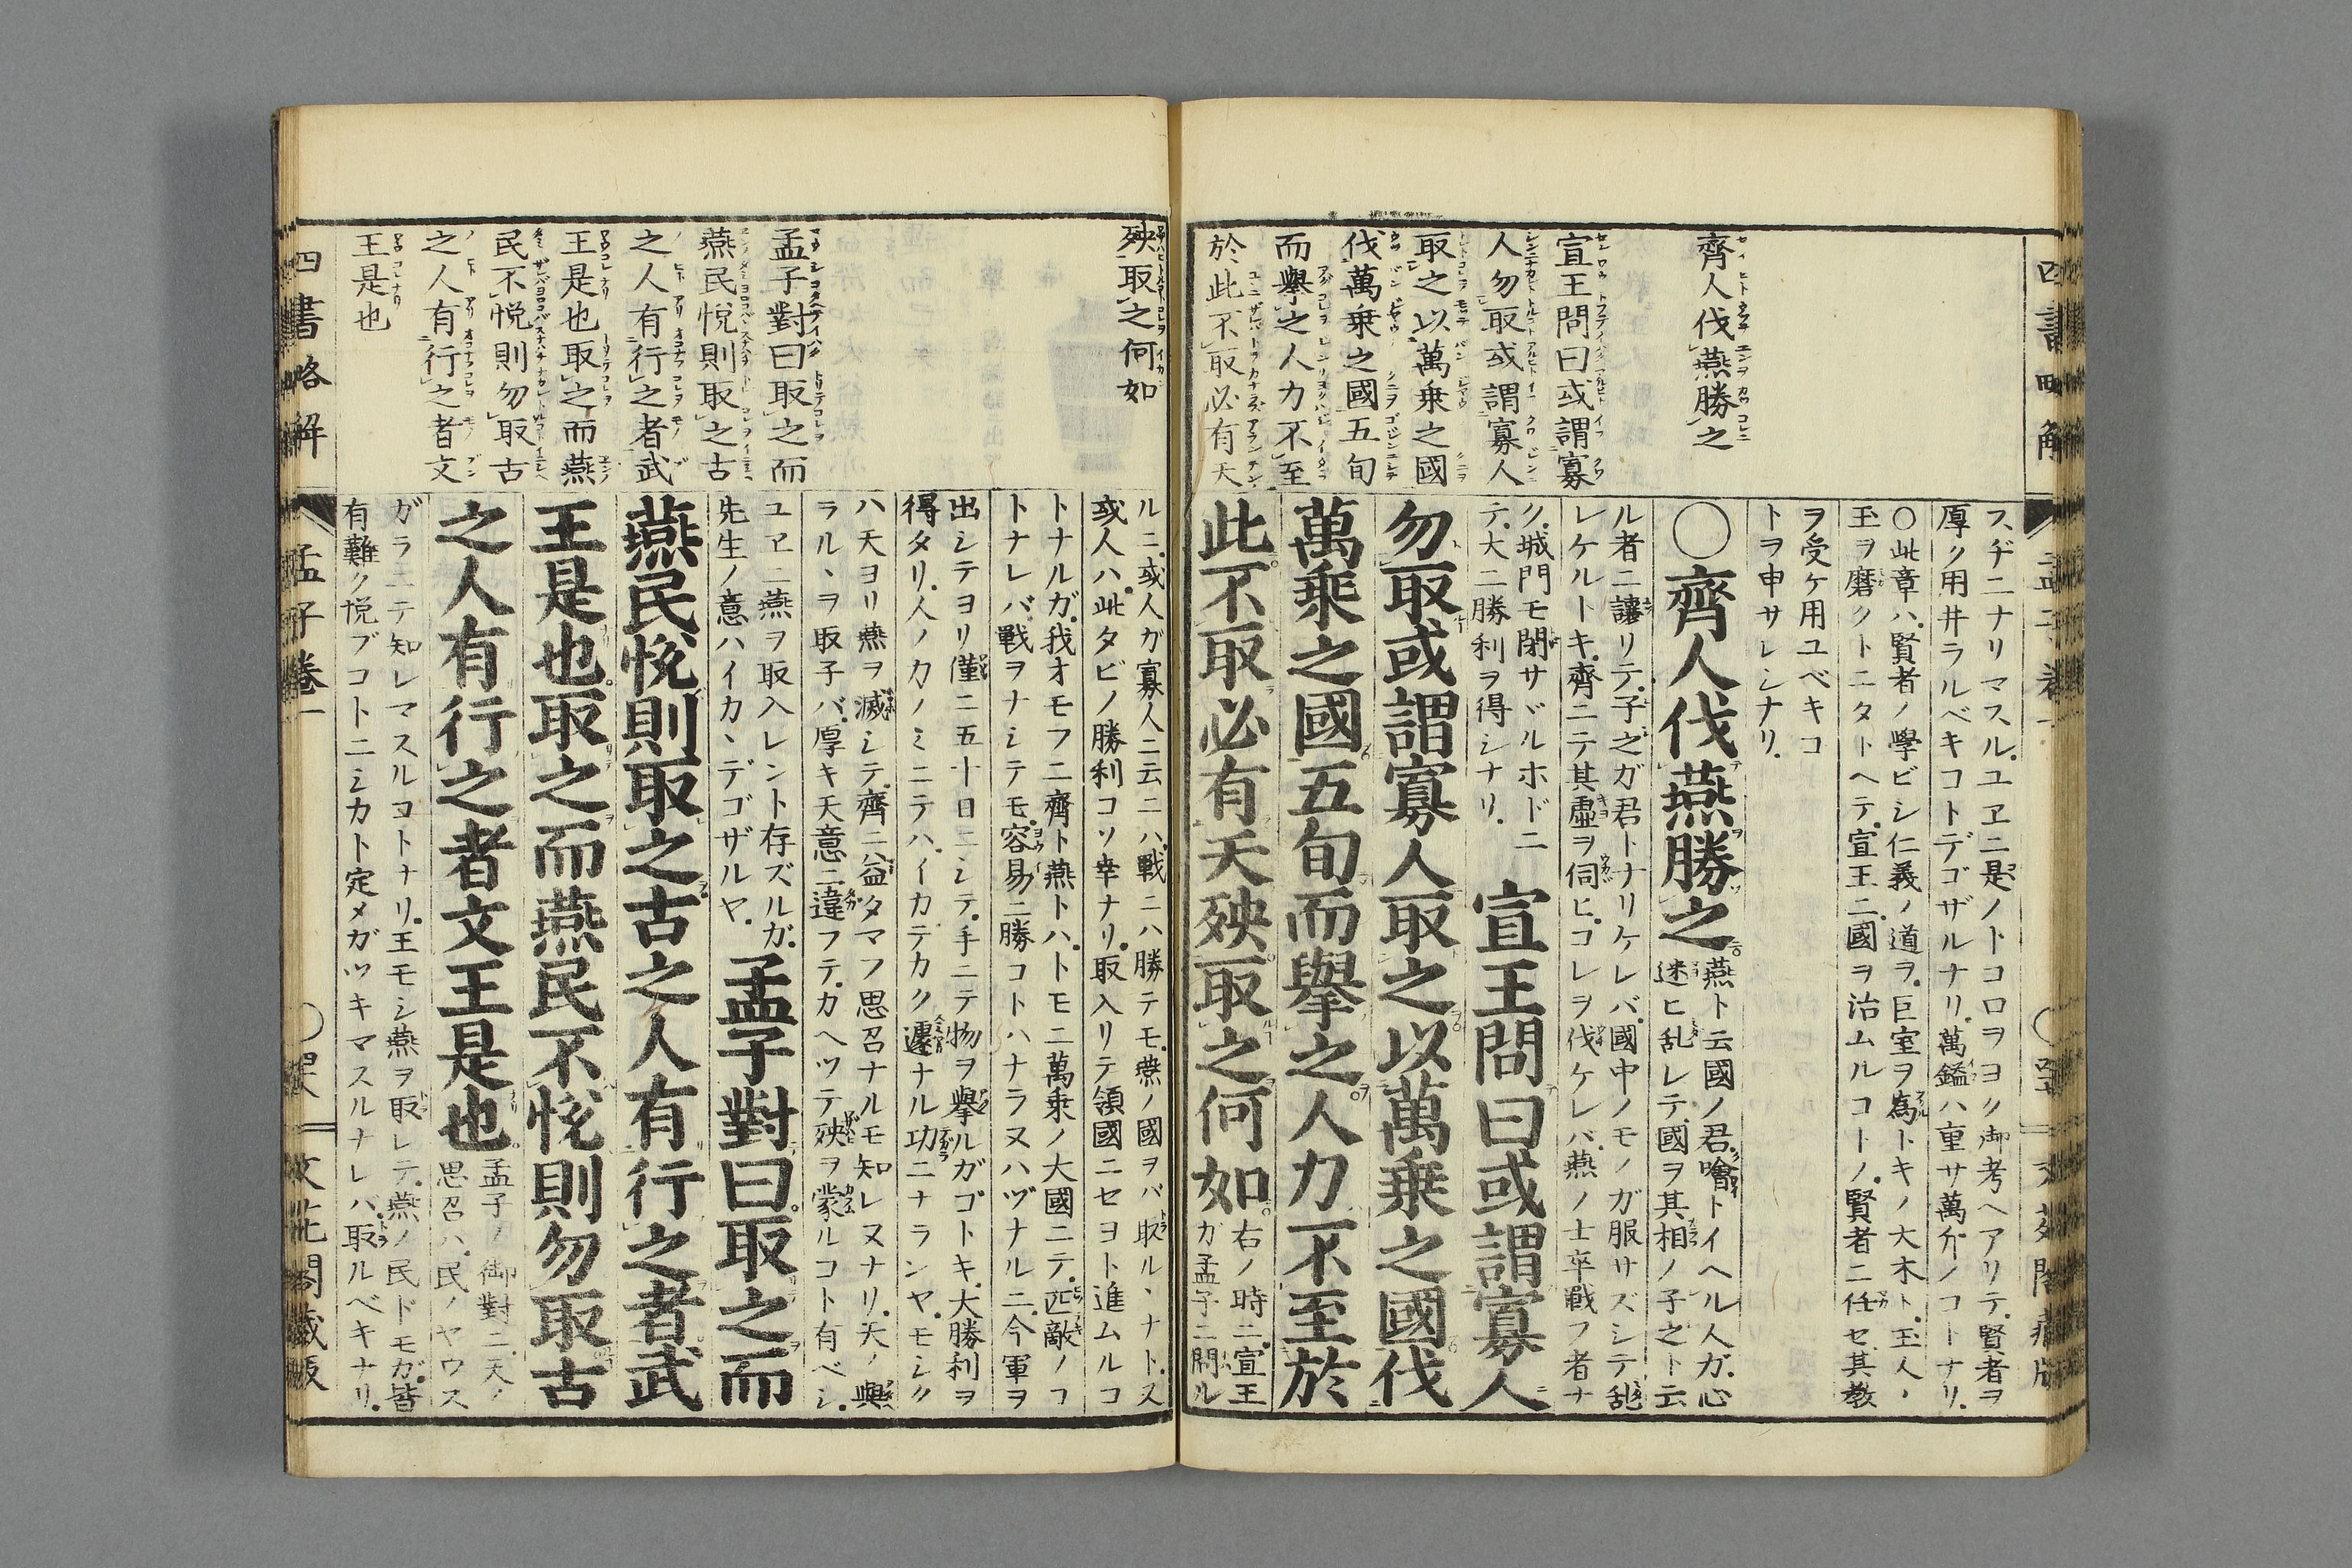 齊人伐燕勝之
宣王問曰或謂寡
人勿取或謂寡人
取之以萬乗之國
伐萬乗之國五旬
而擧之人力不至
於此不取必有天
スヂニナリマスル.ユヱニ是ノトコロヲヨク御考ヘアリテ.賢者ヲ
厚ク用井ラルベキコトデゴザルナリ.萬鎰ハ重サ萬斤ノコトナリ.
○此章ハ.賢者ノ學ビシ仁義ノ道ヲ.巨室ヲ為トキノ大木ト.玉人ノ
玉ヲ磨クトニタトヘテ.宣王ニ.國ヲ治ムルコトノ.賢者ニ任セ其教
ヲ受ケ用ユベキコ
トヲ申サレシナリ.
○齊人伐燕勝之
燕ト云國ノ君.噲トイヘル人ガ.心
迷ヒ乱レテ.國ヲ其相ノ子之ト云
ル者ニ讓リテ.子之ガ君トナリケレバ.國中ノモノガ服サズシテ乱
レケルトキ.齊ニテ其虚ヲ伺ヒ.コレヲ伐ケレバ.燕ノ士卒戰フ者ナ
ク.城門モ閉サヾルホドニ
テ.大ニ勝利ヲ得シナリ.
宣王問曰或謂寡人
勿取或謂寡人取之以萬乗之國伐
萬乗之國五旬而擧之人力不至於
此不取必有天殃取之何如
右ノ時ニ.宣王
ガ孟子ニ問ル
四書略解
孟子卷一
殃取之何如
孟子對曰取之而
燕民悦則取之古
之人有行之者武
王是也取之而燕
民不悦則勿取古
之人有行之者文
王是也
ルニ.或人ガ寡人ニ云ニハ.戰ニハ勝テモ.燕ノ國ヲバ取ル、ナト.ス
或人ハ.此タビノ勝利コソ幸ナリ.取入リテ領國ニセヨト進ムルコ
トナルガ.我オモフニ齊ト燕トハ.トモニ萬乗ノ大國ニテ.匹敵ノコ
トナレバ.戰ヲナシテモ.容易ニ勝コトハナラヌハヅナルニ.今軍ヲ
出シテヨリ僅ニ五十日ニシテ.手ニテ物ヲ擧ルガゴトキ.大勝利ヲ
得タリ.人ノ力ノミニテハ.イカデカク遽ナル功ニナランヤ.モシク
ハ天ヨリ燕ヲ滅シテ.齊ニ益タマフ思召ナルモ知レヌナリ.天ノ與
ラル、ヲ取子バ.厚キ天意ニ違フテ.カヘツテ殃ヲ蒙ルコト有ベシ.
ユヱニ燕ヲ取入レント存ズルガ.
先生ノ意ハイカヾデゴザルヤ.
孟子對曰取之而
燕民悦則取之古之人有行之者武
王是也取之而燕民不悦則勿取古
之人有行之者文王是也
孟子ノ御對ニ.天ノ
思召ハ.民ノヤウス
ガラニテ知レマスルコトナリ.王モシ燕ヲ取レテ.燕ノ民ドモガ.皆
有難ク悦ブコトニシカト定メガツキマスルナレバ.取ルベキナリ.
四書略解
孟子卷一